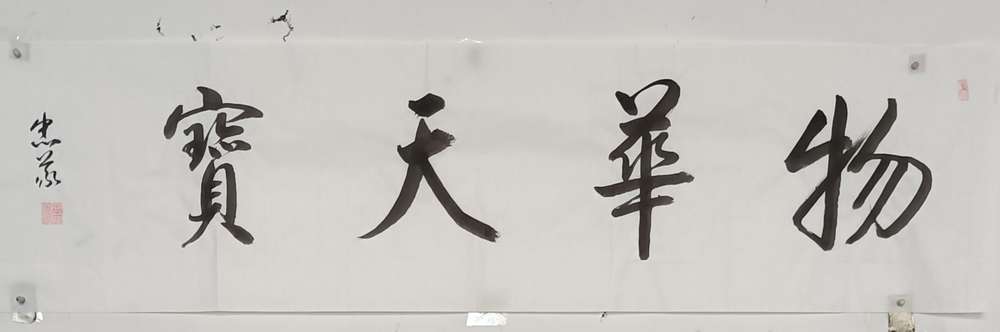 物華天寶
忠義